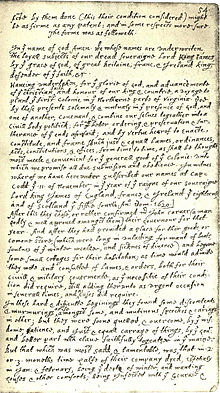 54
by them done (this their condition considered) might
be as firme as any patent; and in some respects more sure.
The forme was as followeth.
In ye name of god Amen. We whose names are underwriten,
the loyall subjects of our dread soveraigne Lord King James
by ye grace of god, of great Britaine, franc, & Ireland king,
defender of ye faith, &c
Haveing undertaken, for ye glorie of god, and advancemente
of ye christian faith and honour of our king & countrie, a voyage to
plant ye first colonie in ye Northerne parts of Virginia. doe
by these presents solemnly & mutualy in ye presence of god, and
one of another, covenant, & combine our selves togeather into a
civill body politick; for our better ordering, & preservation & fur=
therance of ye ends aforesaid; and by vertue hearof to enacte,
constitute, and frame shuch just & equall lawes, ordinances,
Acts, constitutions, & offices, from time to time, as shall be thought
most meete & convenient for ye generall good of ye Colonie: unto
which we promise all due submission and obedience. In witnes
wherof we have hereunder subscribed our names at Cap=
Codd ye .11. of November, in ye year of ye raigne of our soveraigne
Lord king James of England, france, & Ireland ye eighteenth
and of Scotland ye fiftie fourth. Ano: Dom. 1620.
After this they chose, or rather confirmed mr John Carver (a man
godly & well approved amongst them) their Governour for that
year. And after they had provided a place for their goods, or
comone store, (which were long in unlading for want of boats,
foulnes of ye winter weather, and sicknes of diverce) and begune
some small cottages for their habitation; as time would admitte
they mette and consulted of lawes, & orders, both for their
civill & military Govermente, as ye necessitie of their condi=
tion did require, still adding therunto as urgent occasion
in severall times, and as cases did require.
In these hard & difficulte beginings they found some discontents
& murmurings arise amongst some, and mutinous speeches & carriags
in other; but they were soone quelled, & overcome, by ye wis=
dome, patience, and just & equall carrage of things, by ye Govr
and better part wch clave faithfully togeather in ye maine.
But that which was most sadd, & lamentable, was, that in 2.
or 3. moneths time halfe of their company dyed, espetialy
in Jan: & february, being ye depth of winter, and wanting
houses & other comforts; being infected with ye scurvie &